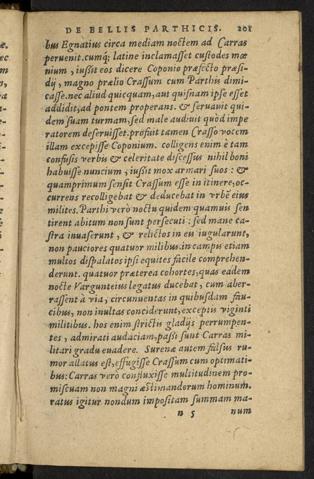 DE BELLIS PARTHICIS. 201
bus Egnatius circa mediam noctem ad Carras
peruenit. cumq́; latine inclamasset custodes mœ
nium, iussit eos dicere Coponio præfecto præsi-
dij, magno prælio Crassum cum Parthis dimi-
casse. nec aliud quicquam, aut quisnam ipse esset
addidit, ad pontem properans. & seruauit qui-
dem suam turmam, sed male audiuit quòd impe
ratorem deseruisset. profuit tamen Crasso vocem
illam excepisse Coponium. colligens enim è tam
confusis verbis & celeritate discessus nihil boni
habuisse nuncium, iussit mox armari suos: &
quamprimum sensit Crassum esse in itinere, oc-
currens recolligebat & deducebat in vrbē eius
milites. Parthi verò noctu quidem quamuis sen
tirent abitum non sunt persecuti: sed mane ca-
stra inuaserunt, & relictos in eis iugularunt,
non pauciores quatuor milibus. in campis etiam
multos dispalatos ipsi equites facile comprehen-
derunt. quatuor præterea cohortes, quas eadem
nocte Vargunteius legatus ducebat, cum aber-
rassent à via, circumuentas in quibusdam fau-
cibus, non inultas conciderunt, exceptis viginti
militibus. hos enim strictis gladijs perrumpen-
tes, admirati audaciam, passi sunt Carras mi-
litari gradu euadere. Surenæ autem falsus ru-
mor allatus est, effugisse Crassum cum optimati-
bus: Carras verò confluxisse multitudinem pro-
miscuam non magni æstimandorum hominum.
ratus igitur nondum impositam summam ma-
n 5 num